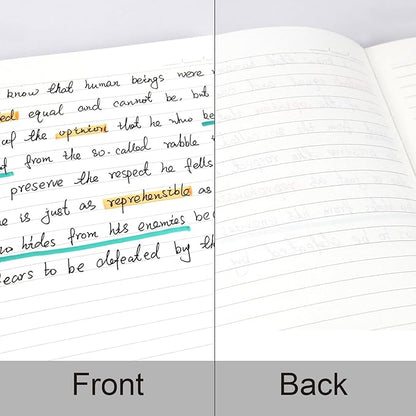 know that human beings were
ed equal and cannot be, but
of the opinion that he who
from the so-called rabble
preserve the respect he fells
is just as reprehensible as
hides from his enemies
to be defeated by
Front
Back